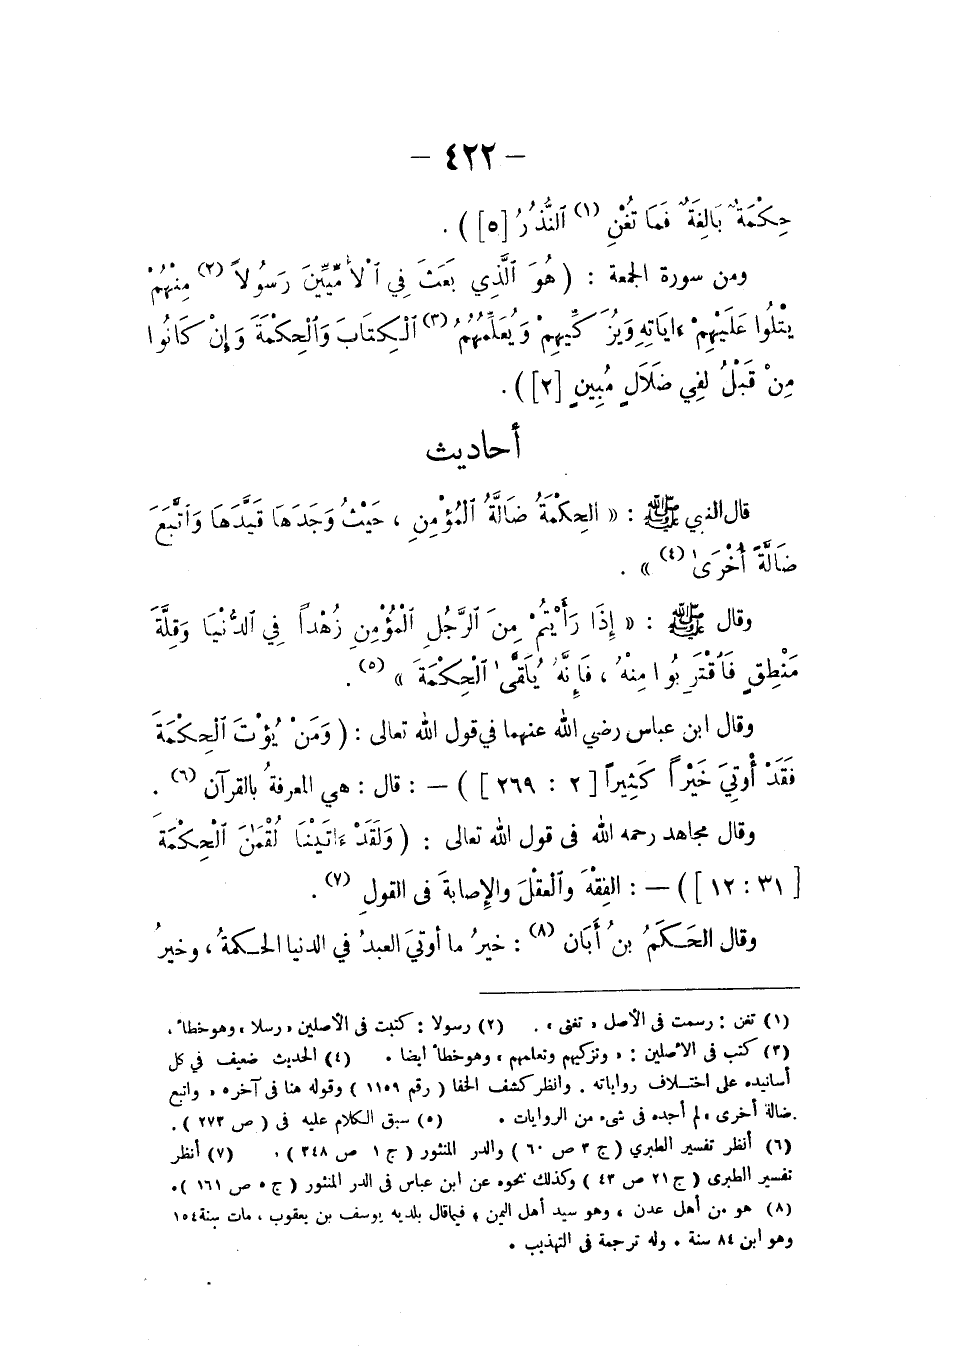 — ٤٢٢ —
حِكْمَةٌ بَالِغَةٌ فَمَا تُغْنِ (١) ٱلنُّذُرُ [٥] ) .
ومن سورة الجمعة : ( هُوَ ٱلَّذِي بَعَثَ فِي ٱلْأُمِّيِّينَ رَسُولاً (٢) مِنْهُمْ
يَتْلُوا عَلَيْهِمْ ءَايَاتِهِ وَيُزَكِّيهِمْ وَيُعَلِّمُهُمُ (٣) ٱلْكِتَابَ وَٱلْحِكْمَةَ وَإِنْ كَانُوا
مِنْ قَبْلُ لَفِي ضَلَالٍ مُبِينٍ [٢] ) .
أحاديث
قال النبي ﷺ : « الحِكْمَةُ ضَالَّةُ ٱلْمُؤْمِنِ ، حَيْثُ وَجَدَهَا قَيَّدَهَا وَٱتَّبَعَ
ضَالَّةً أُخْرَىٰ (٤) » .
وقال ﷺ : « إِذَا رَأَيْتُمْ مِنَ ٱلرَّجُلِ ٱلْمُؤْمِنِ زُهْداً فِي ٱلدُّنْيَا وَقِلَّةَ
مَنْطِقٍ فَٱقْتَرِبُوا مِنْهُ ، فَإِنَّهُ يُلَقَّىٰ ٱلْحِكْمَةَ » (٥) .
وقال ابن عباس رضي الله عنهما في قول الله تعالى : ( وَمَنْ يُؤْتَ ٱلْحِكْمَةَ
فَقَدْ أُوتِيَ خَيْراً كَثِيراً [ ٢ : ٢٦٩ ] ) — : قال : هي المعرفةُ بالقرآن (٦) .
وقال مجاهد رحمه الله فى قول الله تعالى : ( وَلَقَدْ ءَاتَيْنَا لُقْمَٰنَ ٱلْحِكْمَةَ
[ ٣١ : ١٢ ] ) — : الفِقْهَ وٱلعقْلَ والإصابةَ فى القولِ (٧) .
وقال الحَكَمُ بنُ أَبَان (٨) : خيرُ ما أوتيَ العبدُ في الدنيا الحكمةُ ، وخيرُ
(١) تغن : رسمت فى الأصل « تغنى » . (٢) رسولا : كتبت فى الأصلين « رسلا » وهو خطأ ،
(٣) كتب فى الأصلين : « ونزكيهم ونعلمهم » وهو خطأ ايضا . (٤) الحديث ضعيف في كل
أسانيده على اختلاف رواياته . وانظر كشف الخفا ( رقم ١١٥٩ ) وقوله هنا فى آخره « واتبع
ضالة أخرى » لم أجده فى شىء من الروايات . (٥) سبق الكلام عليه فى ( ص ٢٧٣ ) .
(٦) أنظر تفسير الطبري ( ج ٣ ص ٦٠ ) والدر المنثور ( ج ١ ص ٣٤٨ ) . (٧) أنظر
تفسير الطبرى ( ج ٢١ ص ٤٣ ) وكذلك نحوه عن ابن عباس فى الدر المنثور ( ج ٥ ص ١٦١ ) .
(٨) هو من أهل عدن ، وهو سيد أهل اليمن ، فيما قال بلديه يوسف بن يعقوب ، مات سنة ١٥٤
وهو ابن ٨٤ سنة . وله ترجمة فى التهذيب .